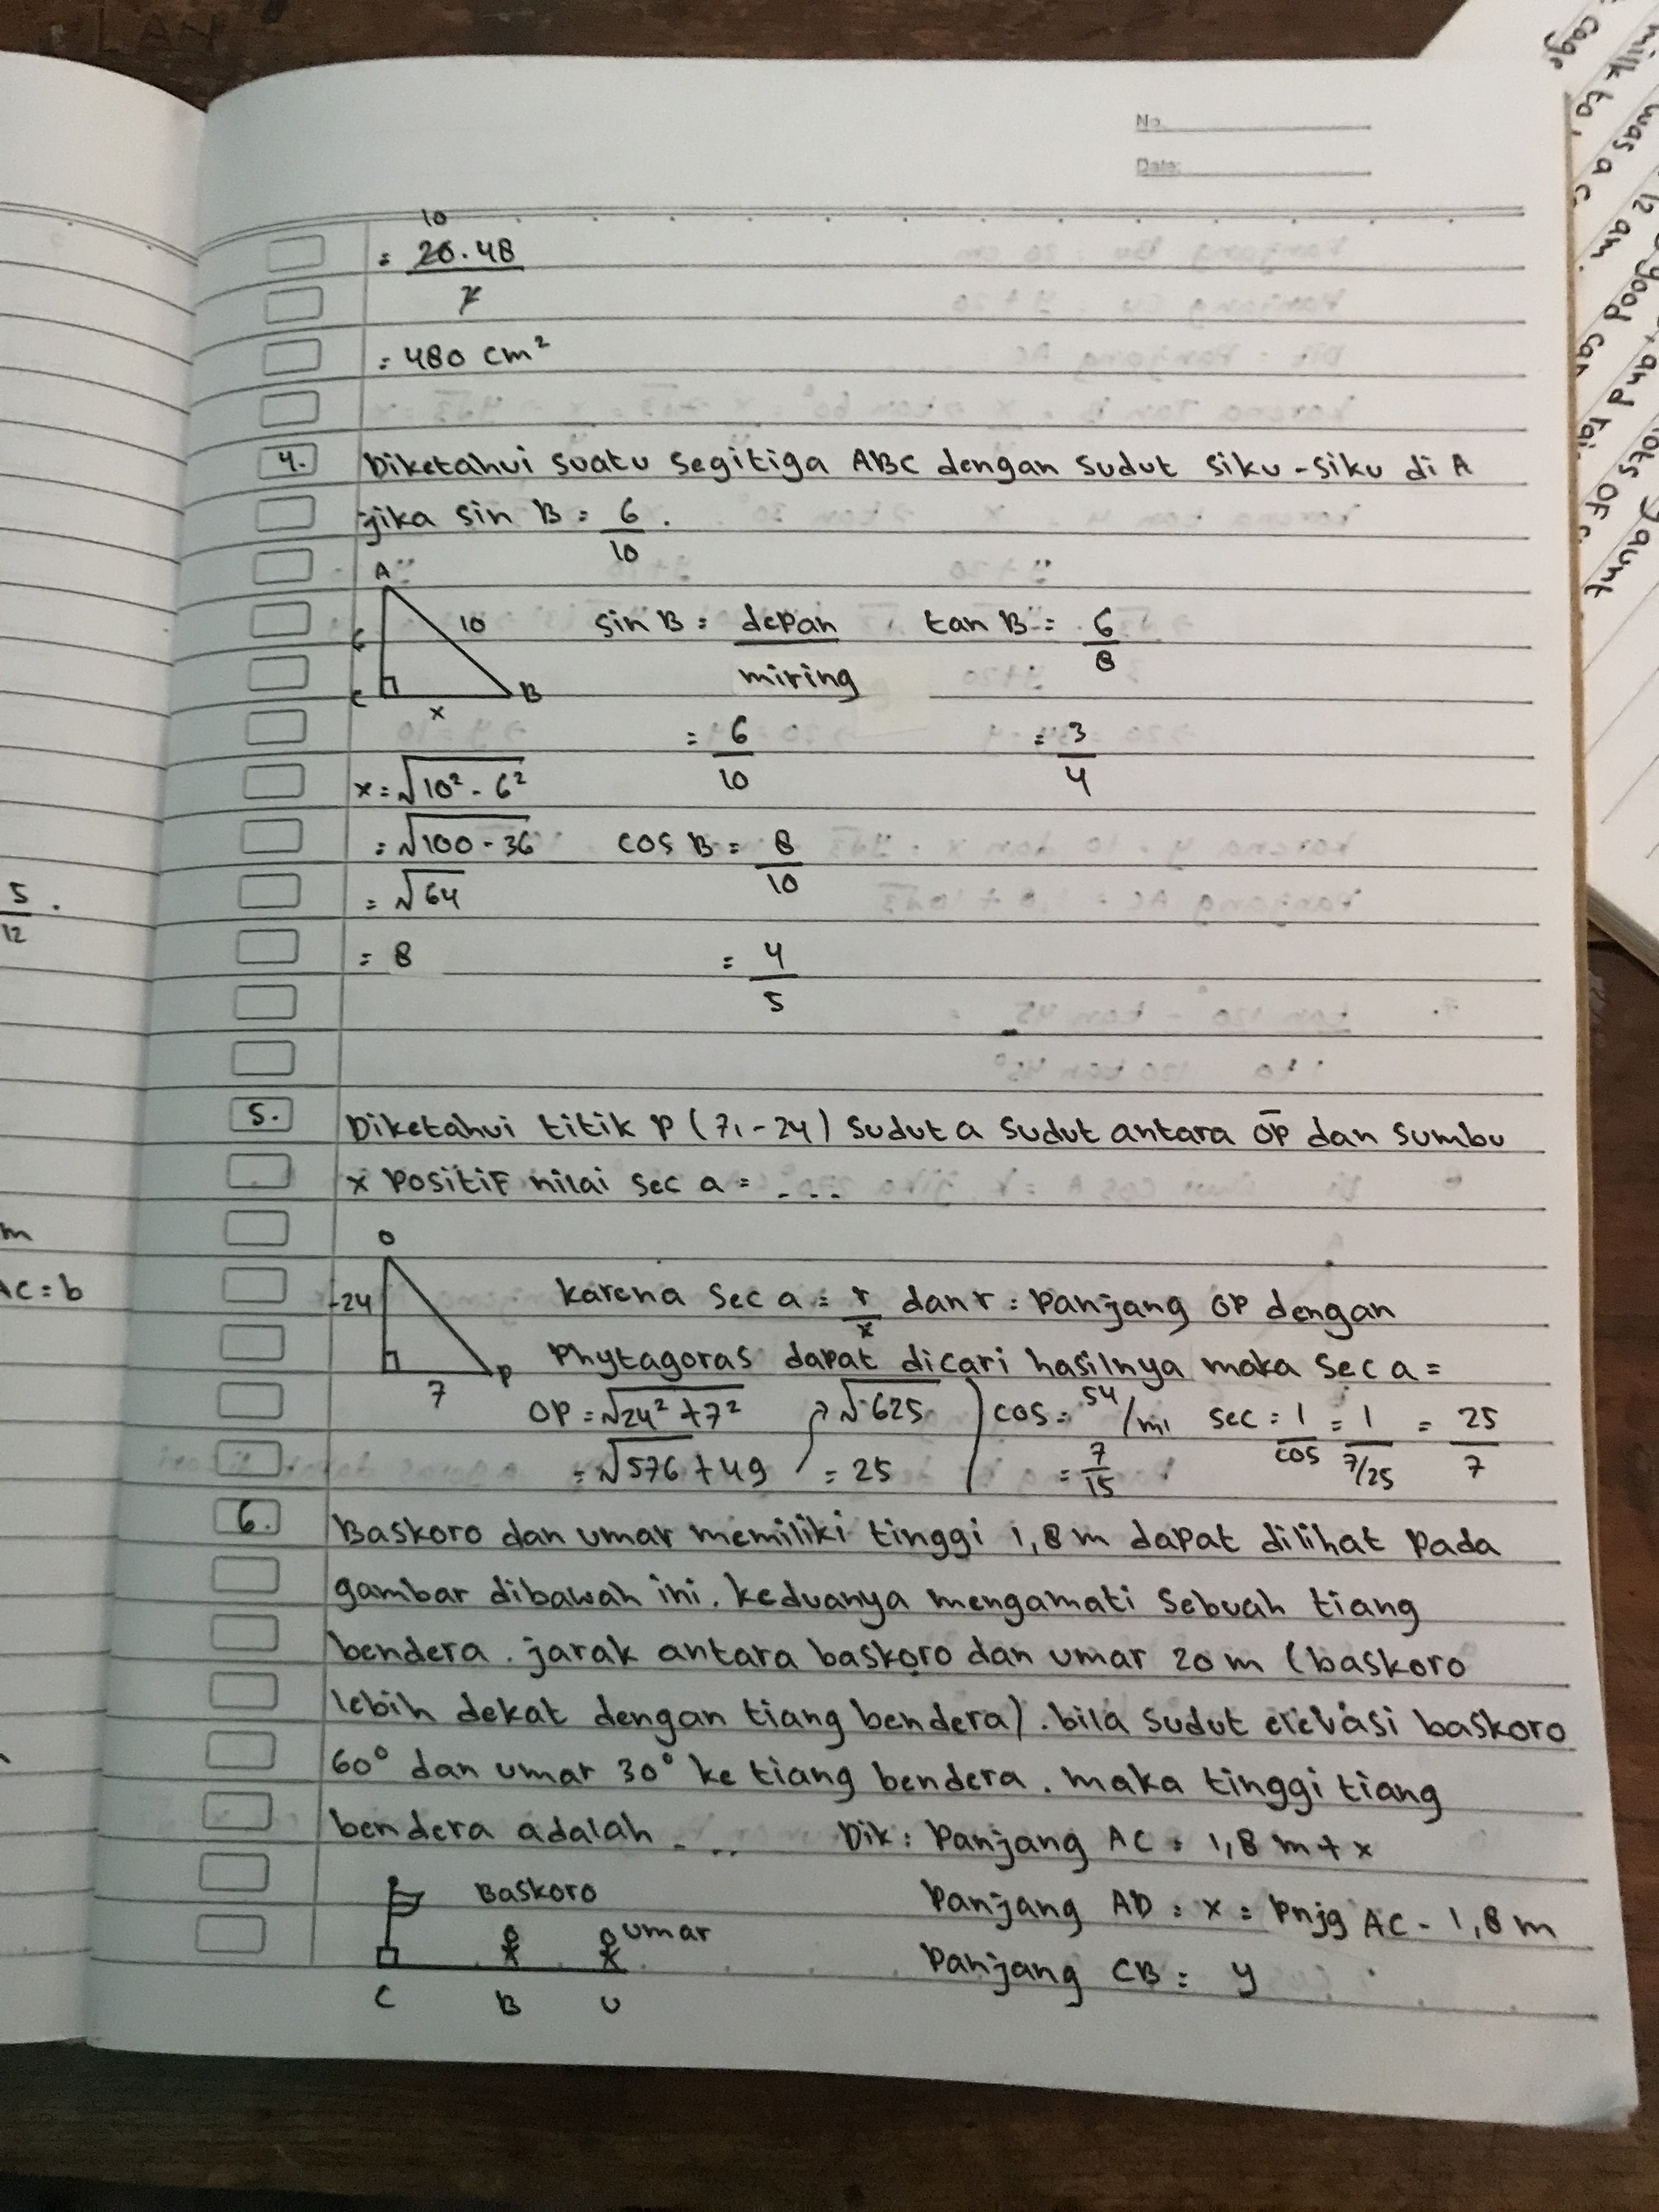 No.
Date:
10
= 20.48
2
= 480 cm²
4. Diketahui suatu segitiga ABC dengan sudut siku-siku di A
jika sin B = 6
10
A
6
10
C
x
B
sin B = depan
miring
= 6
10
tan B = 6
8
= 3
4
x = √10² - 6²
= √100 - 36
= √64
= 8
cos B = 8
10
= 4
5
5. Diketahui titik P (7, -24) sudut a sudut antara OP dan sumbu
x positif nilai sec a = ....
O
-24
7
P
karena sec a = r/x dan r = panjang OP dengan
Phytagoras dapat dicari hasilnya maka sec a =
OP = √24² + 7²
= √576 + 49
→ √625
= 25
cos = sa/mi
= 7
15
sec = 1/cos = 1/7/25 = 25/7
6. Baskoro dan umar memiliki tinggi 1,8 m dapat dilihat pada
gambar dibawah ini. keduanya mengamati sebuah tiang
bendera. jarak antara baskoro dan umar 20 m (baskoro
lebih dekat dengan tiang bendera). bila sudut elevasi baskoro
60° dan umar 30° ke tiang bendera. maka tinggi tiang
bendera adalah ....
Dik: Panjang AC = 1,8 m + x
Panjang AD = x = pnjg AC - 1,8 m
Panjang CB = y
Baskoro
umar
C B U
5
12
m
AC = b